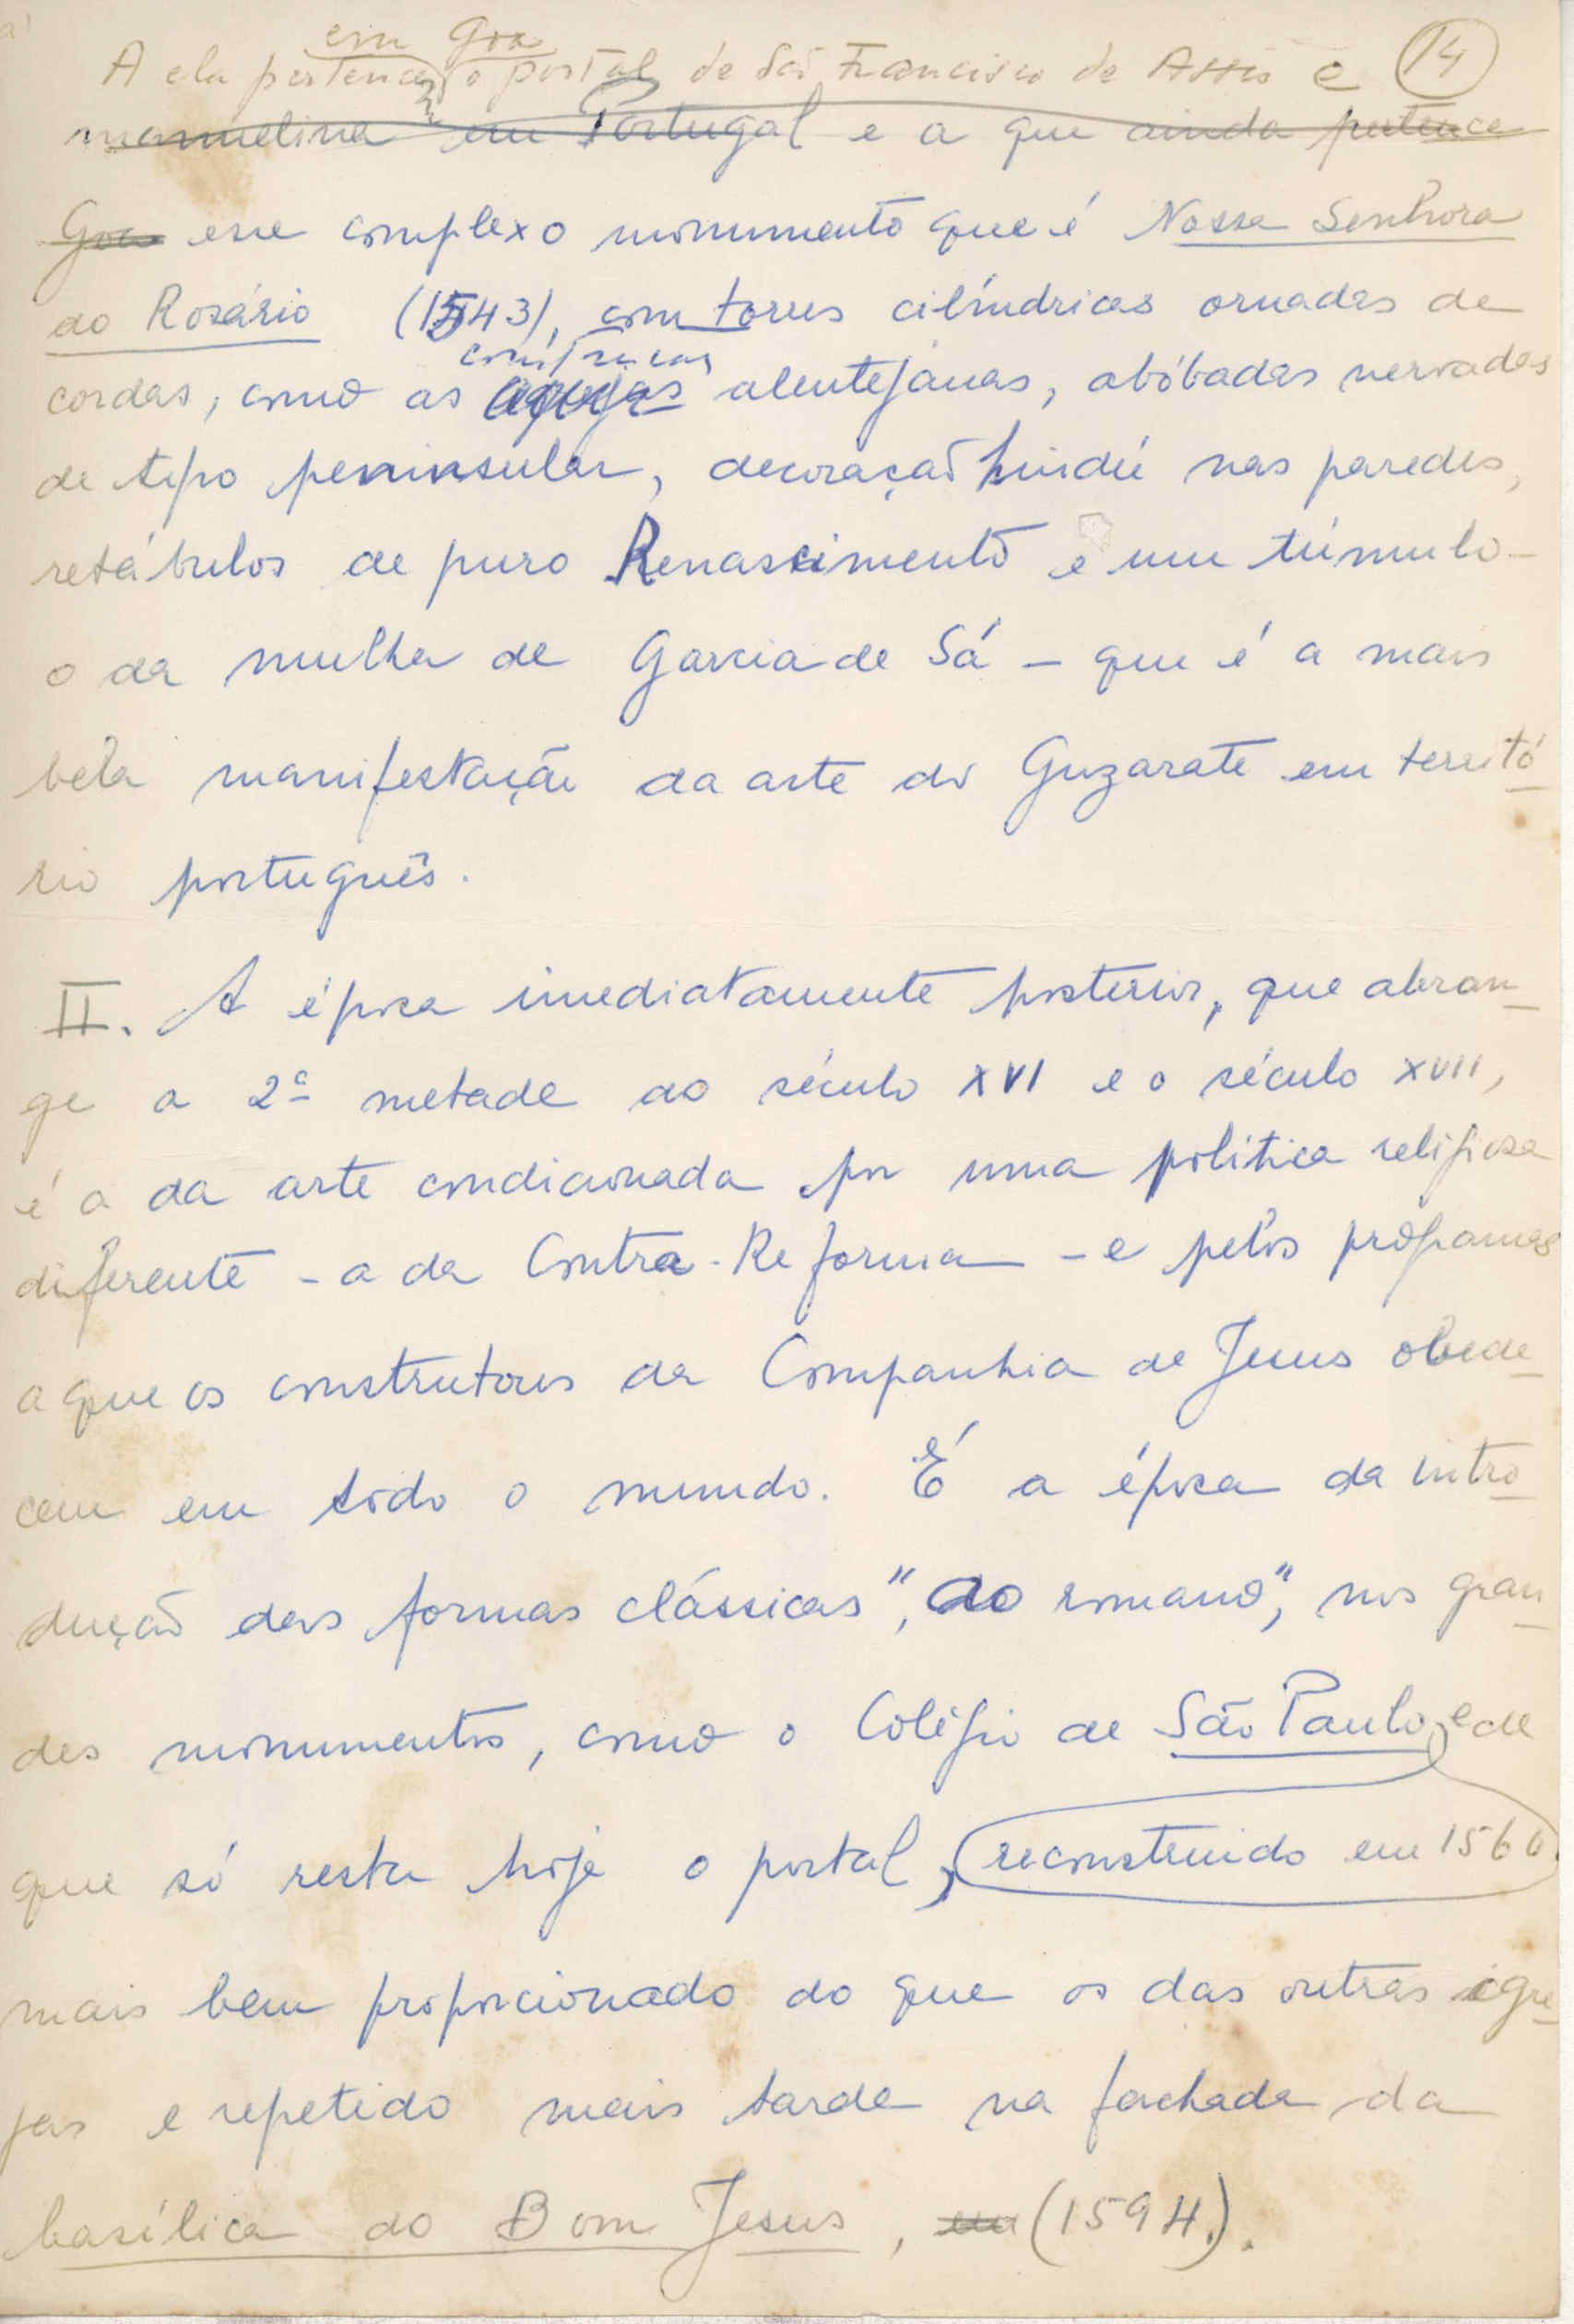 em Goa
A ela pertencem o portal de São Francisco de Assis e 14
manuelina em Portugal e a que ainda pertence
Goa esse complexo monumento que é Nossa Senhora
do Rosário (1543), com torres cilíndricas ornadas de
construções
cordas, como as alentejanas, abóbadas nervadas
de tipo peninsular, decoração hindú nas paredes,
retábulos de puro Renascimento e um túmulo -
o da mulher de Garcia de Sá - que é a mais
bela manifestação da arte do Guzarate em territó
rio português.
II. A época imediatamente posterior, que abran-
ge a 2ª metade do século XVI e o século XVII,
é a da arte condicionada por uma política religiosa
diferente - a da Contra-Reforma - e pelos programas
a que os construtores da Companhia de Jesus obede-
cem em todo o mundo. É a época da intro
dução das formas clássicas, "ao romano", nos gran
des monumentos, como o Colégio de São Paulo, e de
que só resta hoje o portal, reconstruido em 1560,
mais bem proporcionado do que os das outras igre-
jas e repetido mais tarde na fachada da
basílica do Bom Jesus, em (1594).